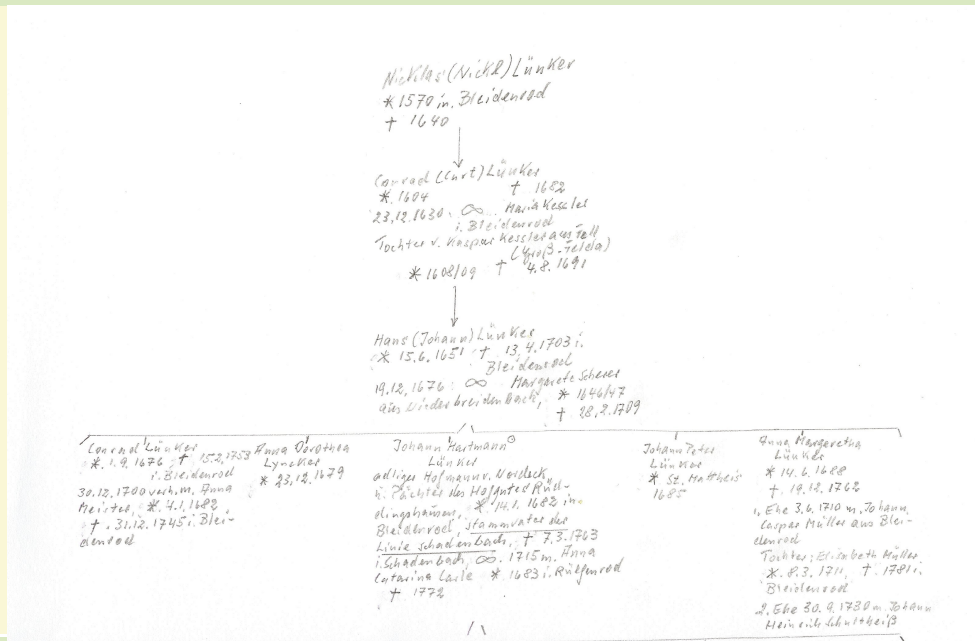 Nicklas (Nickl) Lünker
* 1570 in Bleidenrod
† 1640
Conrad (Curt) Lünker
* 1604 † 1682
23.12.1630 ∞ Maria Kessler
i. Bleidenrod
Tochter v. Kaspar Kessler aus Fell
(Groß-Felda)
* 1608/09 † 4.8.1691
Hans (Johann) Lünker
* 15.6.1651 † 13.4.1703 i.
Bleidenrod
19.12.1676 ∞ Margarete Scherer
aus Niederbreidenbach, * 1646/47
† 28.2.1709
Conrad Lünker
* 1.9.1676 † 15.2.1753
i. Bleidenrod
30.12.1700 verh. m. Anna
Meister, * 4.1.1682,
† 31.12.1745 i. Blei-
denrod
Anna Dorothea
Lyncker
* 23.12.1679
Johann Hartmann
Lünker
adliger Hofmann v. Nordeck
u. Pächter des Hofgutes Rüd-
dingshausen, * 14.1.1682 in
Bleidenrod, Stammvater der
Linie Schadenbach, † 7.3.1763
i. Schadenbach, ∞ 1715 m. Anna
Catarina * 1683 i. Rülgenrod
† 1772
Johann Peter
Lünker
* St. Mattheis
1685
Anna Margaretha
Lünker
* 14.6.1688
† 19.12.1762
1. Ehe 3.6.1710 m. Johann
Caspar Müller aus Blei-
denrod
Tochter: Elisabeth Müller
* 8.3.1711, † 1781 i.
Bleidenrod
2. Ehe 30.9.1730 m. Johann
Heinrich Schultheiß